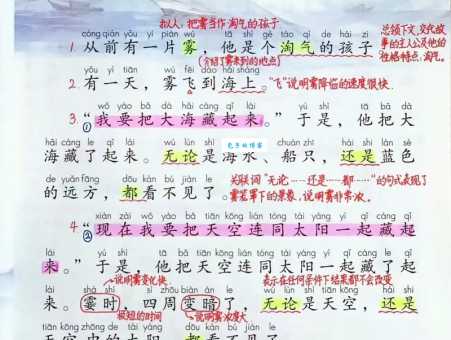 拟人,把雾当作淘气的孩子
cóng qián yǒu yí piàn wù tā shì gè táo qì de hái zi
1. 从前有一片雾,他是个淘气的孩子
总领下文,交代故事的主人公及他的性格特点:淘气。
(介绍了雾来到的地点)
yǒu yì tiān wù fēi dào hǎi shàng
2. 有一天,雾飞到海上。
"飞"说明雾降临的速度很快.
wǒ yào bǎ dà hǎi cáng qǐ lái yú shì tā bǎ dà
3. ①“我要把大海藏起来。”于是,他把大
hǎi cáng le qǐ lái wú lùn shì hǎi shuǐ chuán zhī hái shì lán sè
海藏了起来。无论是海水、船只,还是蓝色
de yuǎn fāng dōu kàn bù jiàn le
的远方,都看不见了。
关联词“无论……还是……都……”的句式表现了雾笼罩下的景象,说明雾非常浓。
xiàn zài wǒ yào bǎ tiān kōng lián tóng tài yáng yì qǐ cáng qǐ
4 ②“现在我要把天空连同太阳一起藏起
lái yú shì tā bǎ tiān kōng lián tóng tài yáng yì qǐ cáng le qǐ
来。”于是,他把天空连同太阳一起藏了起
说明雾变化快. 表示在任何条件下结果都不会改变
lái shà shí sì zhōu biàn àn le wú lùn shì tiān kōng hái shì
来。霎时,四周变暗了,无论是天空,还是
极短的时间 说明雾浓度大
tiān kōng zhōng de tài yáng dōu kàn bú jiàn le
天空中的太阳,都看不见了